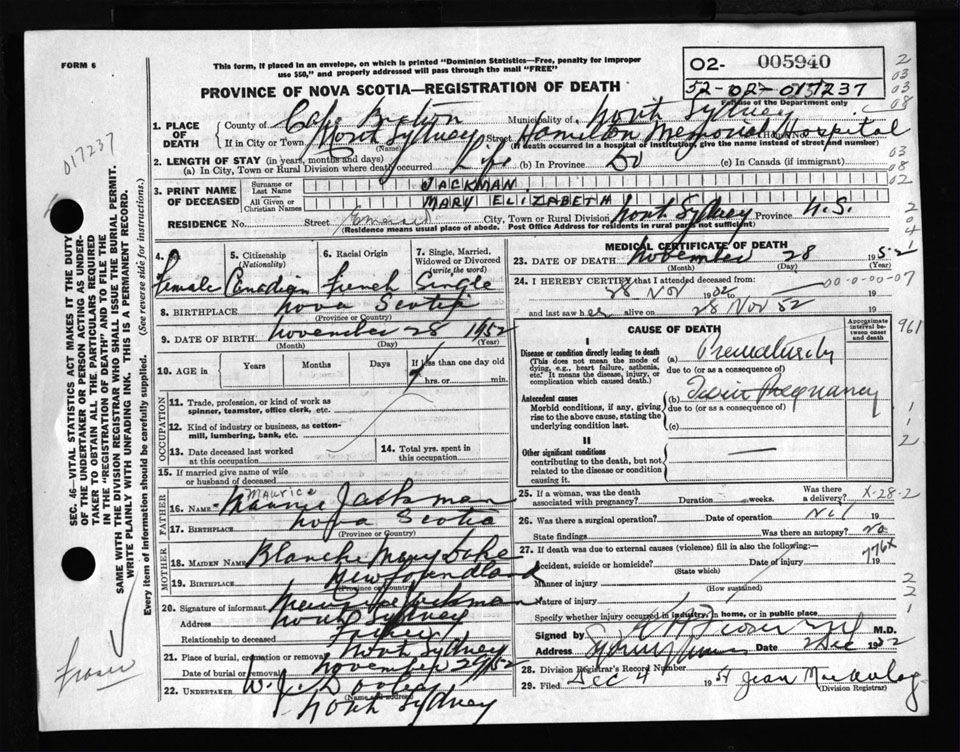 FORM 6
This form, if placed in an envelope, on which is printed "Dominion Statistics—Free, penalty for improper
use $50," and properly addressed will pass through the mail "FREE"
O2- 005940
52-02-017237
For use of the Department only
PROVINCE OF NOVA SCOTIA—REGISTRATION OF DEATH
1. PLACE OF DEATH
County of Cape Breton Municipality of North Sydney
If in City or Town North Sydney (Name) Street Hamilton Memorial Hospital House No.
(If death occurred in a hospital or institution, give the name instead of street and number)
2. LENGTH OF STAY (in years, months and days)
(a) In City, Town or Rural Division where death occurred Life (b) In Province Do (c) In Canada (if immigrant)
3. PRINT NAME OF DECEASED
Surname or Last Name JACKMAN
All Given or Christian Names MARY ELIZABETH
RESIDENCE No. Street City, Town or Rural Division North Sydney Province N.S.
(Residence means usual place of abode. Post Office Address for residents in rural parts not sufficient)
4. Female
5. Citizenship (Nationality) Canadian
6. Racial Origin French
7. Single, Married, Widowed or Divorced (write the word) Single
8. BIRTHPLACE Nova Scotia
(Province or Country)
9. DATE OF BIRTH November 28 1952
(Month) (Day) (Year)
10. AGE in Years Months Days If less than one day old
hrs. or min.
OCCUPATION
11. Trade, profession, or kind of work as
spinner, teamster, office clerk, etc.
12. Kind of industry or business, as cotton-
mill, lumbering, bank, etc.
13. Date deceased last worked
at this occupation
14. Total yrs. spent in
this occupation
15. If married give name of wife
or husband of deceased
FATHER
Maurice
16. NAME Maurice Jackman
17. BIRTHPLACE Nova Scotia
(Province or Country)
MOTHER
18. MAIDEN NAME Blanche Mary
19. BIRTHPLACE Newfoundland
(Province or Country)
20. Signature of informant Jackman
Address North Sydney
Relationship to deceased Father
21. Place of burial, cremation or removal North Sydney
Date of burial or removal November 29/52
22. UNDERTAKER W. J. Dooley
(Name and address)
North Sydney
MEDICAL CERTIFICATE OF DEATH
23. DATE OF DEATH November 28 1952
(Month) (Day) (Year)
24. I HEREBY CERTIFY that I attended deceased from
28 Nov 1952 to 19
and last saw her alive on 28 Nov 52 19
00-0-00-07
CAUSE OF DEATH
Approximate interval between onset and death
I
Disease or condition directly leading to death
(This does not mean the mode of
dying, e.g., heart failure, asthenia,
etc. It means the disease, injury, or
complication which caused death.)
(a) Prematurity
due to (or as a consequence of)
Antecedent causes
Morbid conditions, if any, giving
rise to the above cause, stating the
underlying condition last.
(b) Twin Pregnancy
due to (or as a consequence of)
(c)
II
Other significant conditions
contributing to the death, but not
related to the disease or condition
causing it.
25. If a woman, was the death
associated with pregnancy? Duration weeks. Was there
a delivery? X-28-2
26. Was there a surgical operation? Date of operation Nil 19
State findings Was there an autopsy? No
27. If death was due to external causes (violence) fill in also the following:—
Accident, suicide or homicide? Date of injury 19
(State which)
776X
Manner of injury
(How sustained)
Nature of injury
Specify whether injury occurred in industry, in home, or in public place
Signed by M.D.
Address Date 2 Dec 1952
28. Division Registrar's Record Number
29. Filed Dec 4 19 Jean
(Division Registrar)
017237
SEC. 46—VITAL STATISTICS ACT MAKES IT THE DUTY
OF THE UNDERTAKER OR PERSON ACTING AS UNDER-
TAKER TO OBTAIN ALL THE PARTICULARS REQUIRED
IN THE "REGISTRATION OF DEATH" AND TO FILE THE
SAME WITH THE DIVISION REGISTRAR WHO SHALL ISSUE THE BURIAL PERMIT.
WRITE PLAINLY WITH UNFADING INK. THIS IS A PERMANENT RECORD.
Every item of information should be carefully supplied. (See reverse side for instructions.)
2
03
03
08
03
08
02
2
0
4
1
961
1
1
2
2
2
1